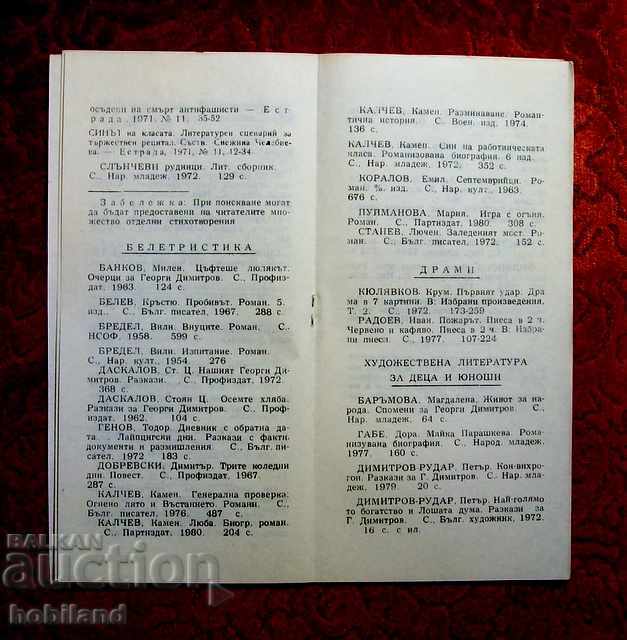 осъдени на смърт антифашисти — Е с т
р а д а, 1971, № 11, 35-52
СИНЪТ на класата. Литературен сценарий за
тържествен рецитал. Съств. Снежина Челебие-
ва. — Естрада, 1971, № 11, 12-34.
СЛЪНЧЕВИ рудници. Лит. сборник.
С., Нар. младеж. 1972. 129 с.
З а б е л е ж к а: При поискване могат
да бъдат предоставени на читателите мно-
жество отделни стихотворения
БЕЛЕТРИСТИКА
БАНКОВ, Милен. Цъфтеше люлякът.
Очерци за Георги Димитров. С., Профиз-
дат. 1963. 124 с.
БЕЛЕВ, Кръстю. Пробивът. Роман. 5.
изд. С., Бълг. писател, 1967. 288 с.
БРЕДЕЛ, Вили. Внуците. Роман. С.,
НСОФ, 1958. 599 с.
БРЕДЕЛ, Вили. Изпитание. Роман.
С., Нар. култ., 1954. 276
ДАСКАЛОВ, Ст. Ц. Нашият Георги Ди-
митров. Разкази. С., Профиздат, 1972.
368 с.
ДАСКАЛОВ, Стоян Ц. Осемте хляба.
Разкази за Георги Димитров. С., Проф-
издат, 1962. 104 с.
ГЕНОВ, Тодор. Дневник с обратна да-
та. Лайпцигски дни. Разкази с факти,
документи и размишления. С., Бълг. писа-
тел. 1972 183 с.
ДОБРЕВСКИ, Димитър. Трите коледни
дни. Повест. С., Профиздат, 1967.
287 с.
КАЛЧЕВ, Камен. Генерална проверка.
Огнено лято и Въстанието. Романи. С.,
Бълг. писател, 1976. 487 с.
КАЛЧЕВ, Камен. Люба. Биогр. роман.
С., Партиздат. 1980. 204 с.
КАЛЧЕВ, Камен. Разминаване. Роман-
тична история. С. Воен. изд. 1974.
136 с.
КАЛЧЕВ, Камен. Син на работническата
класа. Романизована биография. 6 изд.
С., Нар. младеж, 1972. 352 с.
КОРАЛОВ, Емил. Септемврийци. Ро-
ман. изд. С., Нар. култ., 1963.
676 с.
ПУЙМАНОВА. Мария. Игра с огъня.
Роман. С., Партиздат, 1980. 308 с.
СТАНЕВ, Лючен. Заледеният мост. Ро-
ман. С., Бълг. писател, 1972. 152 с.
ДРАМИ
КЮЛЯВКОВ, Крум. Първият удар: Дра
ма в 7 картини. В: Избрани произведения.
Т. 2. С., 1972. 173-259
РАДОЕВ, Иван. Пожарът. Пиеса в 2 ч.
Червено и кафяво. Пиеса в 2 ч. В: Избра-
ни пиеси. С., 1977. 107-224
ХУДОЖЕСТВЕНА ЛИТЕРАТУРА
ЗА ДЕЦА И ЮНОШИ
БАРЪМОВА, Магдалена. Живот за на-
рода. Спомени за Георги Димитров. С.,
Нар. младеж. 64 с.
ГАБЕ, Дора. Майка Парашкева. Рома-
низувана биография. С., Народ. младеж.
1977. 160 с.
ДИМИТРОВ-РУДАР, Петър. Кон-вихро-
гон. Разкази за Г. Димитров. С., Нар. мла-
деж, 1979. 20 с.
ДИМИТРОВ-РУДАР, Петър. Най-голямо
то богатство и Лошата дума. Разкази за
Г. Димитров. С., Бълг. художник, 1972.
16 с. с ил.
BALKAN
auction
hobiland